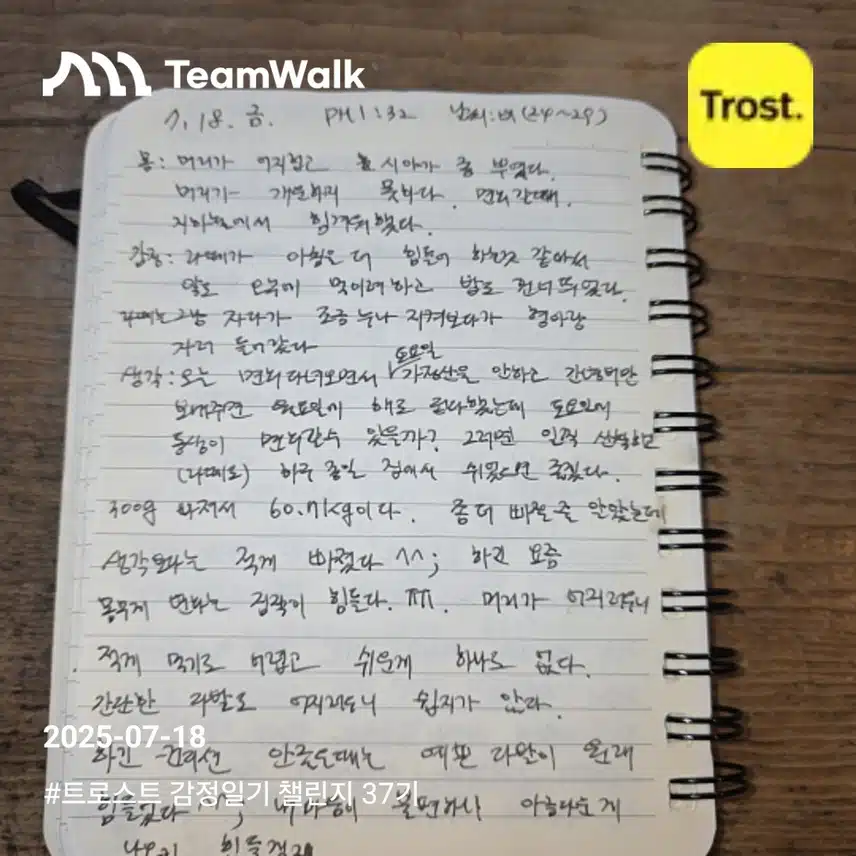 TeamWalk
Trost.
7. 18. 금. PM 1:32 날씨:비(24~29)
몸: 머리가 어지럽고 시야가 좀 부옇다.
머리가 개운하지 못하다. 면회갈때.
지하철에서 힘겨워했다.
감정: 라떼가 아침은 더 힘들어 하는것 같아서
말도 먹이려하고 밥도 건너뛰었다.
라떼는 그냥 자다가 조금 누나 지켜보다가 형아랑
자러 들어갔다
생각: 오늘 면회다녀오면서 토요일 가정산을 안하고
보내주면 월요일에 해도 된다했는데 토요일에
동생이 면회갈수 있을까? 그러면 일찍
(라떼도) 하루 종일 집에서 쉬었으면 좋겠다.
300g 빠져서 60.7kg이다. 좀 더 빠질줄 알았는데
생각보다는 적게 빠졌다 ^^; 하긴 요즘
몸무게 변화는 짐작이 힘들다. ㅠㅠ. 머리가 어지러우니
적게 먹기도 어렵고 쉬운게 하나도 없다.
간단한 어지러우니 쉽지가 않다.
2025-07-18
하긴 컨디션 안좋을때는 예쁜 원래
#트로스트 감정일기 챌린지 37기
힘들었다 ^^; 내 마음이 불편하니 아름다운게
나오기 힘들겠지